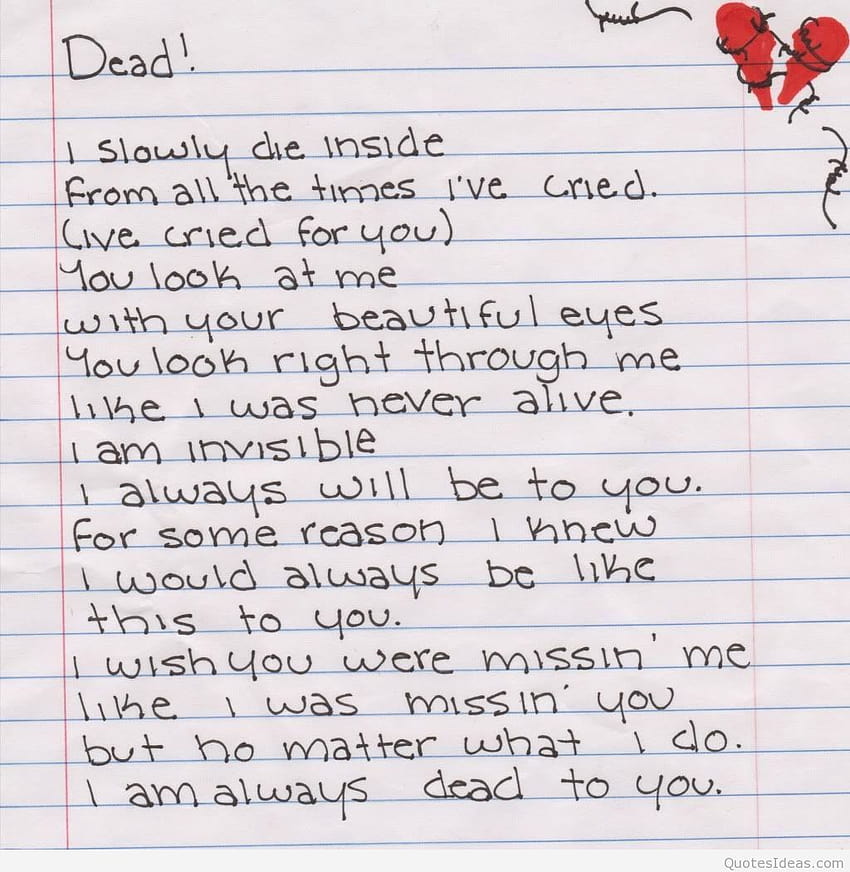 Dead!
I slowly die inside
From all the times I've cried.
(ive cried for you)
You look at me
with your beautiful eyes
You look right through me
like I was never alive.
I am invisible
I always will be to you.
For some reason I knew
I would always be like
this to you.
I wish you were missin' me
like I was missin' you
but no matter what I do.
I am always dead to you.
QuotesIdeas.com